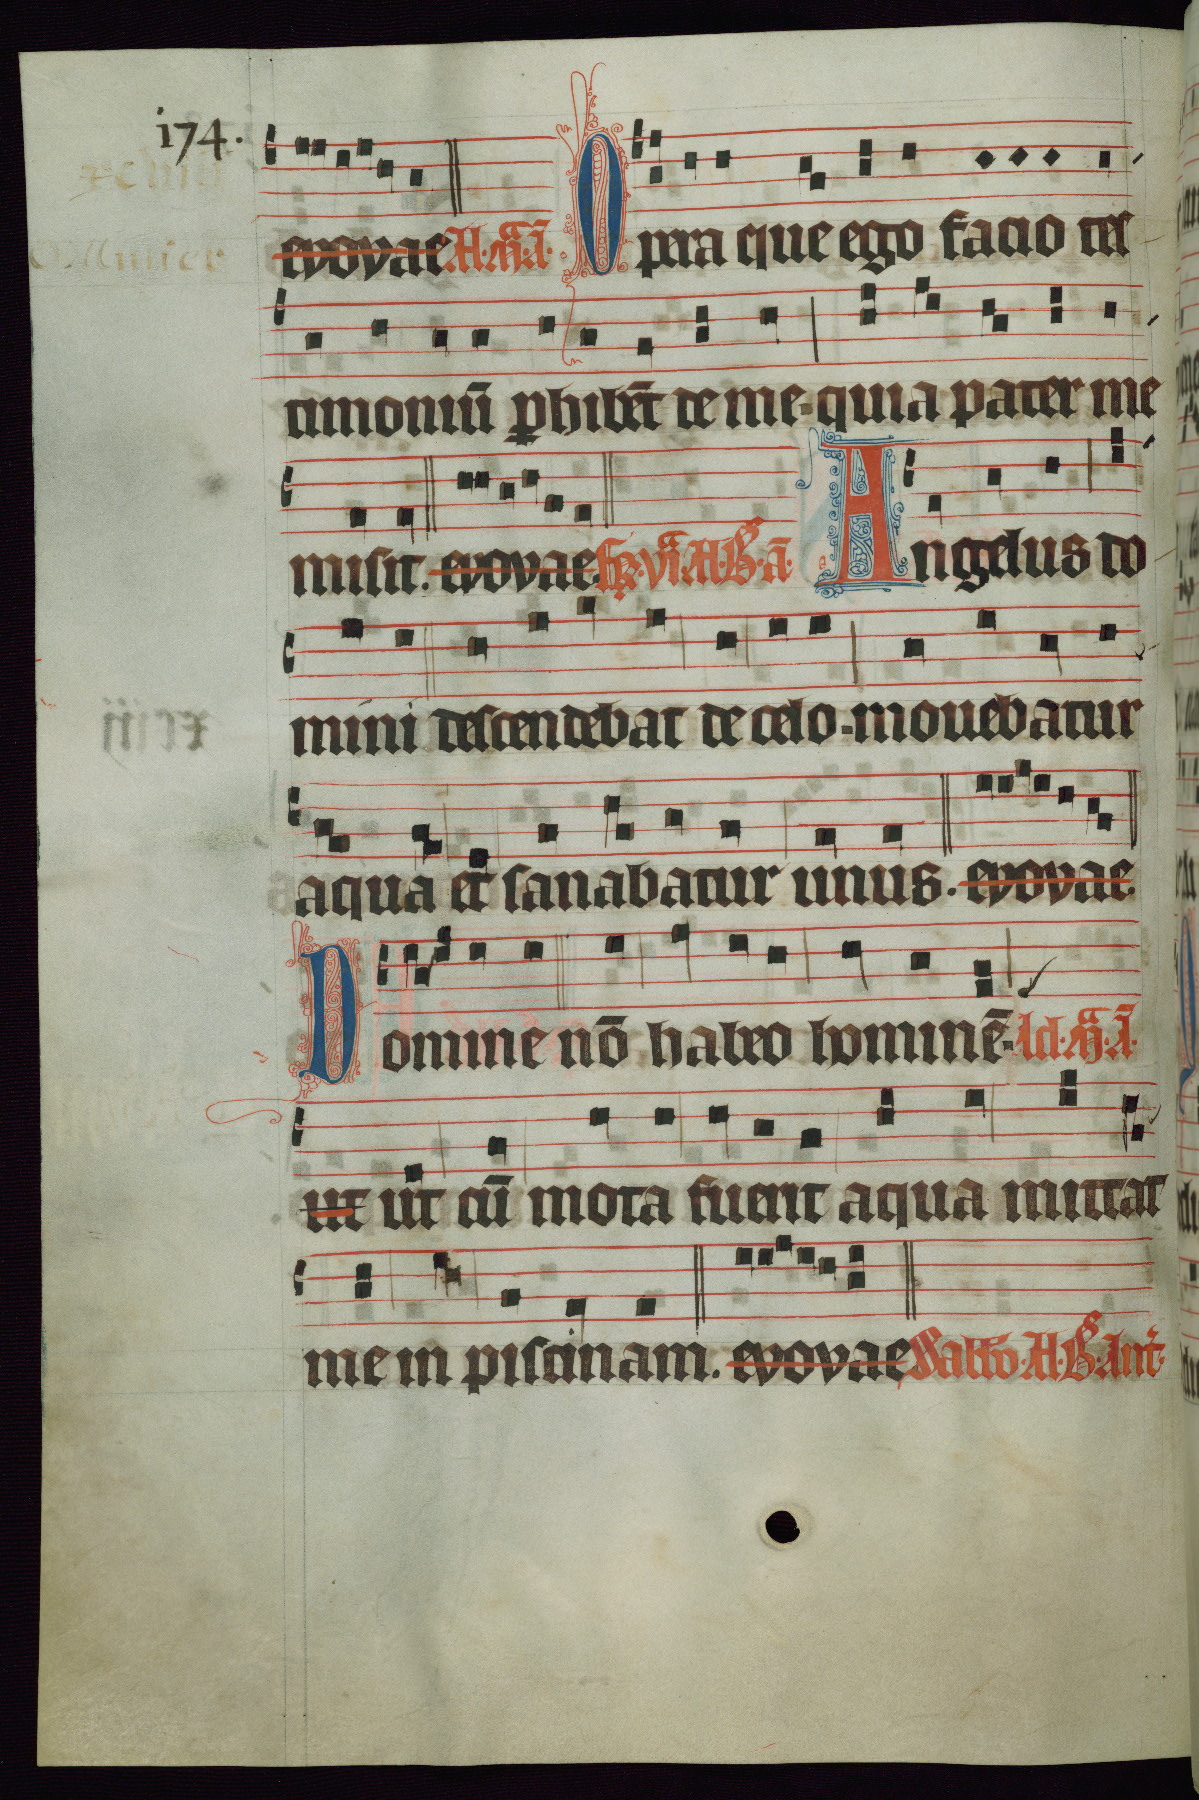 174.
evovae A. M̄. ā. Opera que ego facio tes
timoniū ꝑhibēt de me. quia pater me
misit. evovae. fr. vi. A. B. ā. Angelus do
mini descendebat de celo. mouebatur
aqua et sanabatur unus. evovae.
Domine nō habeo hominē. Ad. M̄. ā.
ut ut cū mota fuerit aqua mittat
me in piscinam. evovae Sabbō. A. B. Ant.
xciij